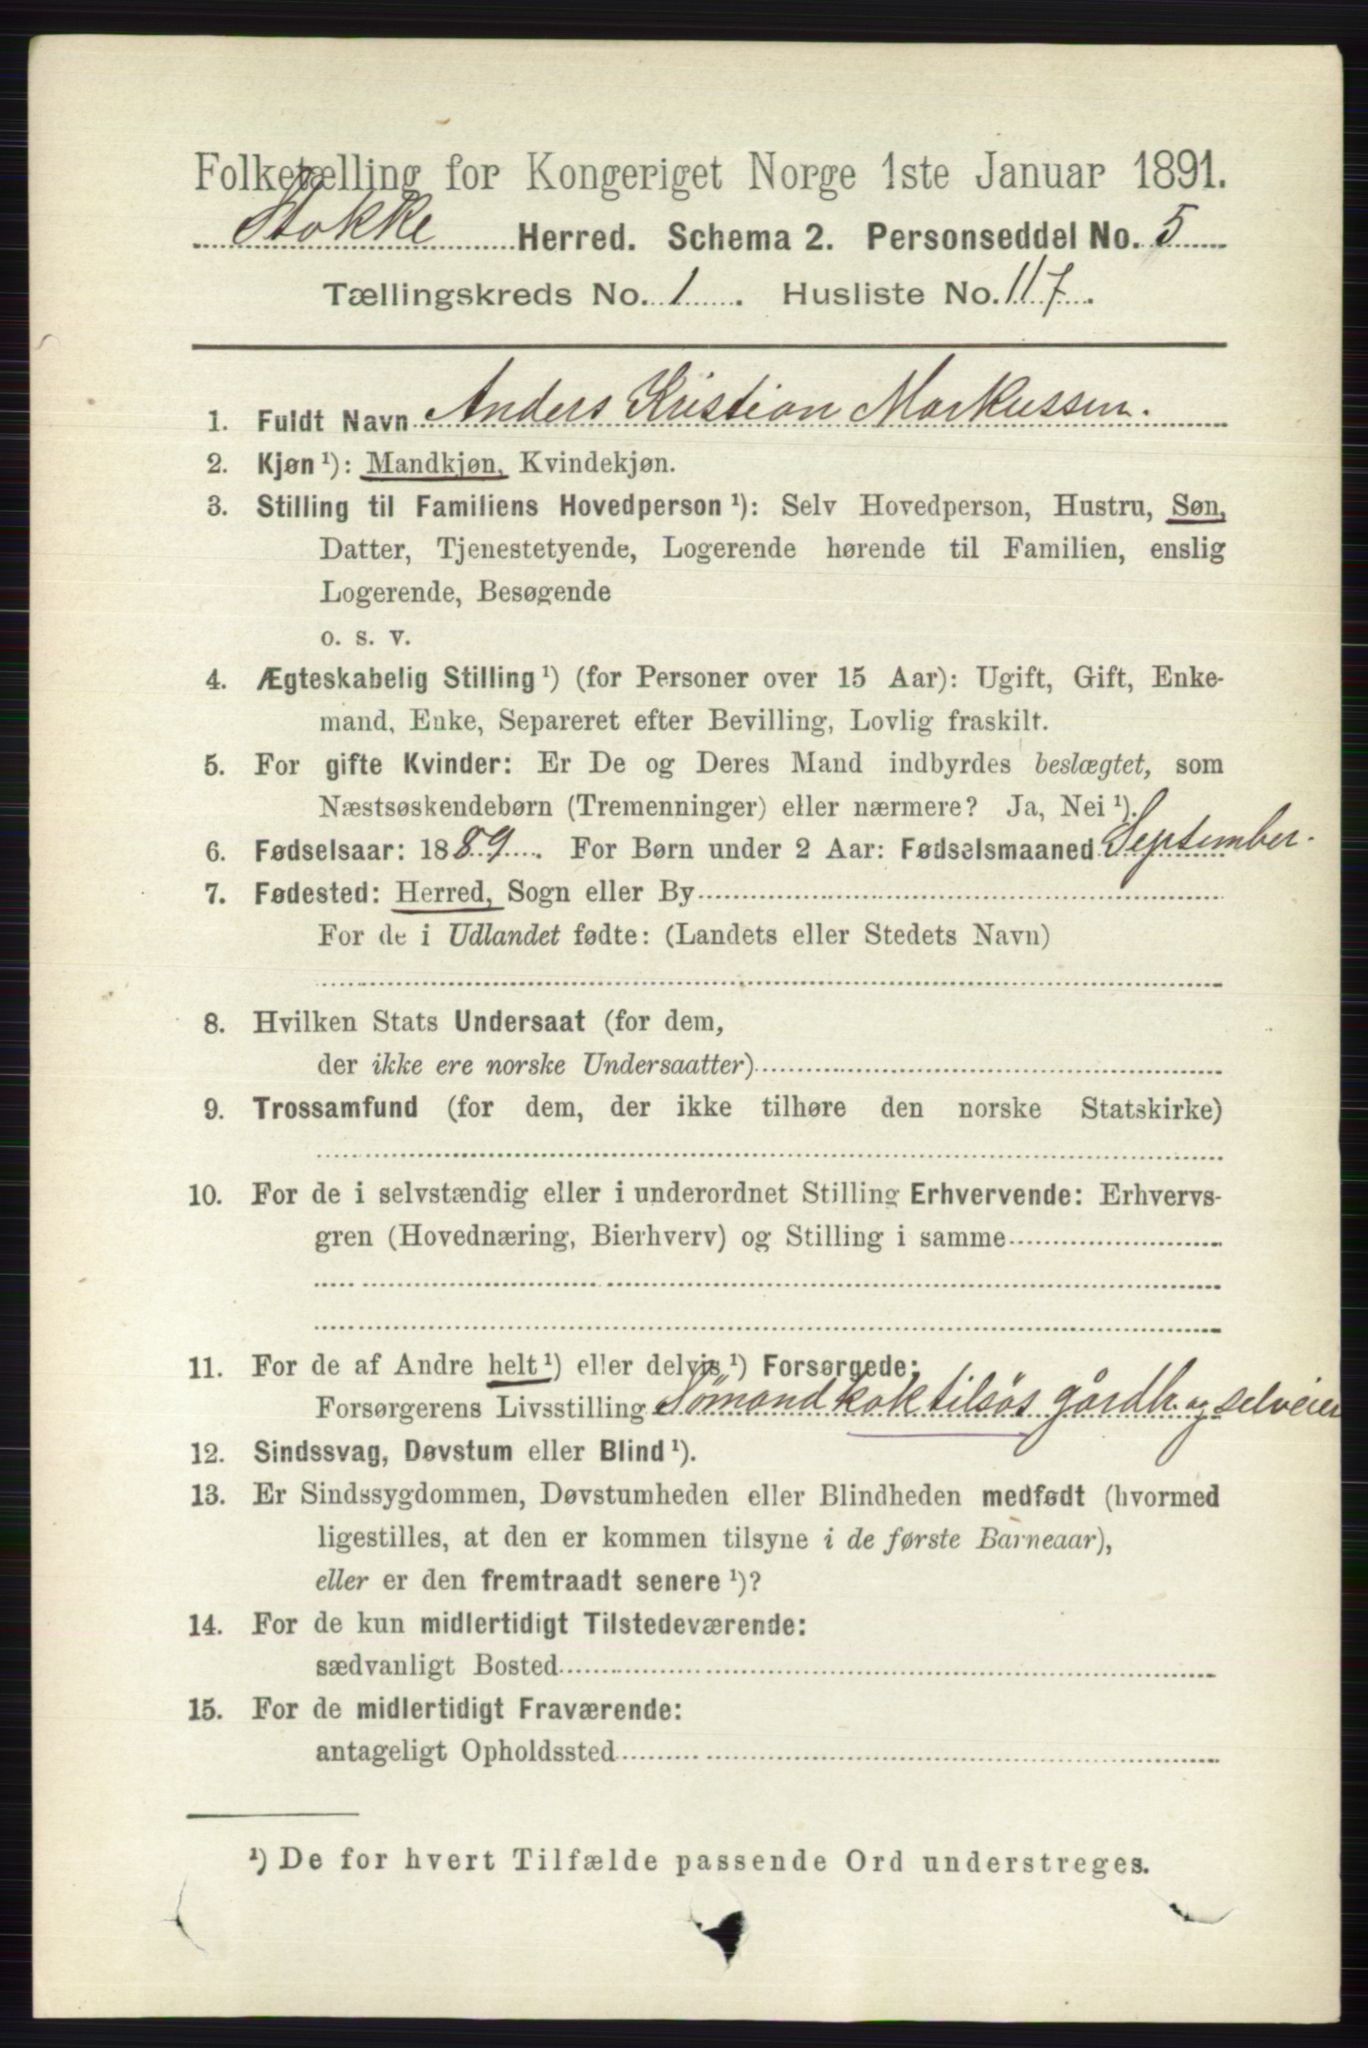 Folketælling for Kongeriget Norge 1ste Januar 1891.
Stokke Herred. Schema 2. Personseddel No. 5
Tællingskreds No. 1. Husliste No. 117.
1. Fuldt Navn Anders Kristian Markussen.
2. Kjøn ¹): Mandkjøn, Kvindekjøn.
3. Stilling til Familiens Hovedperson ¹): Selv Hovedperson, Hustru, Søn,
Datter, Tjenestetyende, Logerende hørende til Familien, enslig
Logerende, Besøgende
o. s. v.
4. Ægteskabelig Stilling ¹) (for Personer over 15 Aar): Ugift, Gift, Enke-
mand, Enke, Separeret efter Bevilling, Lovlig fraskilt.
5. For gifte Kvinder: Er De og Deres Mand indbyrdes beslægtet, som
Næstsøskendebørn (Tremenninger) eller nærmere? Ja, Nei ¹).
6. Fødselsaar: 1889. For Børn under 2 Aar: Fødselsmaaned September.
7. Fødested: Herred, Sogn eller By
For de i Udlandet fødte: (Landets eller Stedets Navn)
8. Hvilken Stats Undersaat (for dem,
der ikke ere norske Undersaatter)
9. Trossamfund (for dem, der ikke tilhøre den norske Statskirke)
10. For de i selvstændig eller i underordnet Stilling Erhvervende: Erhvervs-
gren (Hovednæring, Bierhverv) og Stilling i samme
11. For de af Andre helt ¹) eller delvis ¹) Forsørgede:
Forsørgerens Livsstilling Sømand kok tilsøs gårdb. og selveier
12. Sindssvag, Døvstum eller Blind ¹).
13. Er Sindssygdommen, Døvstumheden eller Blindheden medfødt (hvormed
ligestilles, at den er kommen tilsyne i de første Barneaar),
eller er den fremtraadt senere ¹)?
14. For de kun midlertidigt Tilstedeværende:
sædvanligt Bosted
15. For de midlertidigt Fraværende:
antageligt Opholdssted
¹) De for hvert Tilfælde passende Ord understreges.